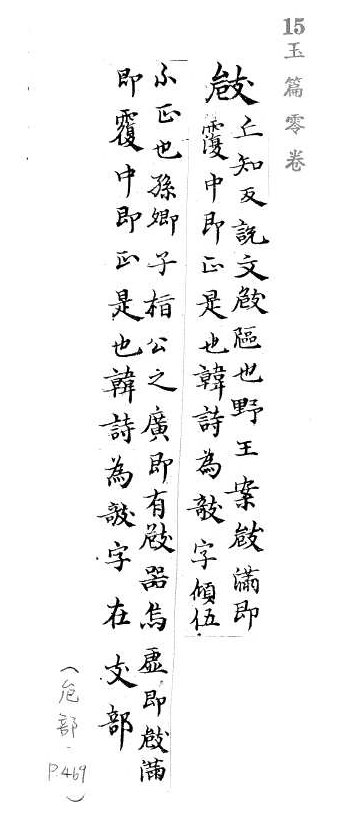 15玉篇零卷
㩻丘知反說文㩻䧢也野王案㩻滿即
覆中即正是也韓詩為敧字傾伍
不正也孫卿子桓公之廣即有㩻器焉虛即㩻滿
即覆中即正是也韓詩為敧字在支部
(危部.P.469)